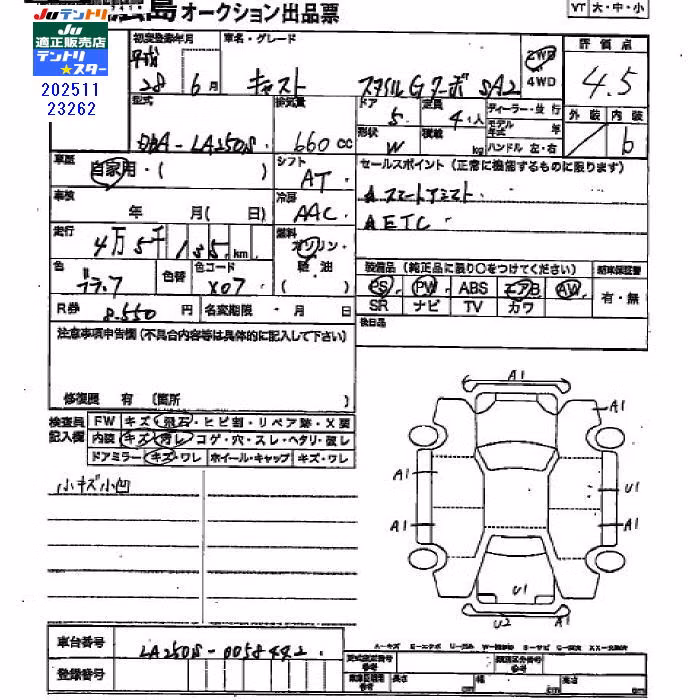 Juテントリ
Ju
適正販売店
テントリ
★スター
202511
23262
島 オークション出品票
VT 大・中・小
初度登録年月 車名・グレード 評価点
平成
28 6月 キャスト スタイルGターボ SA2 2WD 4WD 4.5
型式 排気量 ドア 定員 ディーラー・並行 外装 内装
DBA-LA250S 660cc 5 4人 モデル年式 年
形状 W 積載 kg ハンドル 左・右 b
車歴 自家用・( ) シフト AT セールスポイント (正常に機能するものに限ります)
車検 年 月( 日) 冷房 AAC ▲スマートアシスト
▲ETC
走行 4万5千155km 燃料 ガソリン・軽油 ( )
色 ブラック 色替 色コード X07 装備品 (純正品に限り○をつけてください) 新車保証書
PS PW ABS エアB AW 有・無
SR ナビ TV カワ
R券 8,550円 名変期限 ・ 月 日 後日品
注意事項申告欄 (不具合内容等は具体的に記入して下さい)
修復歴 有 (箇所 )
検査員 FW キズ・飛石・ヒビ割・リペア跡・X要
記入欄 内装 キズ・汚レ・コゲ・穴・スレ・ヘタリ・破レ
ドアミラー キズ・ワレ ホイール・キャップ キズ・ワレ
小キズ小凹
A1
A1
A1 U1
A1 A1
U1
U2 A1
車台番号 LA250S-0058442
登録番号
長さ cm 幅 cm 高さ cm